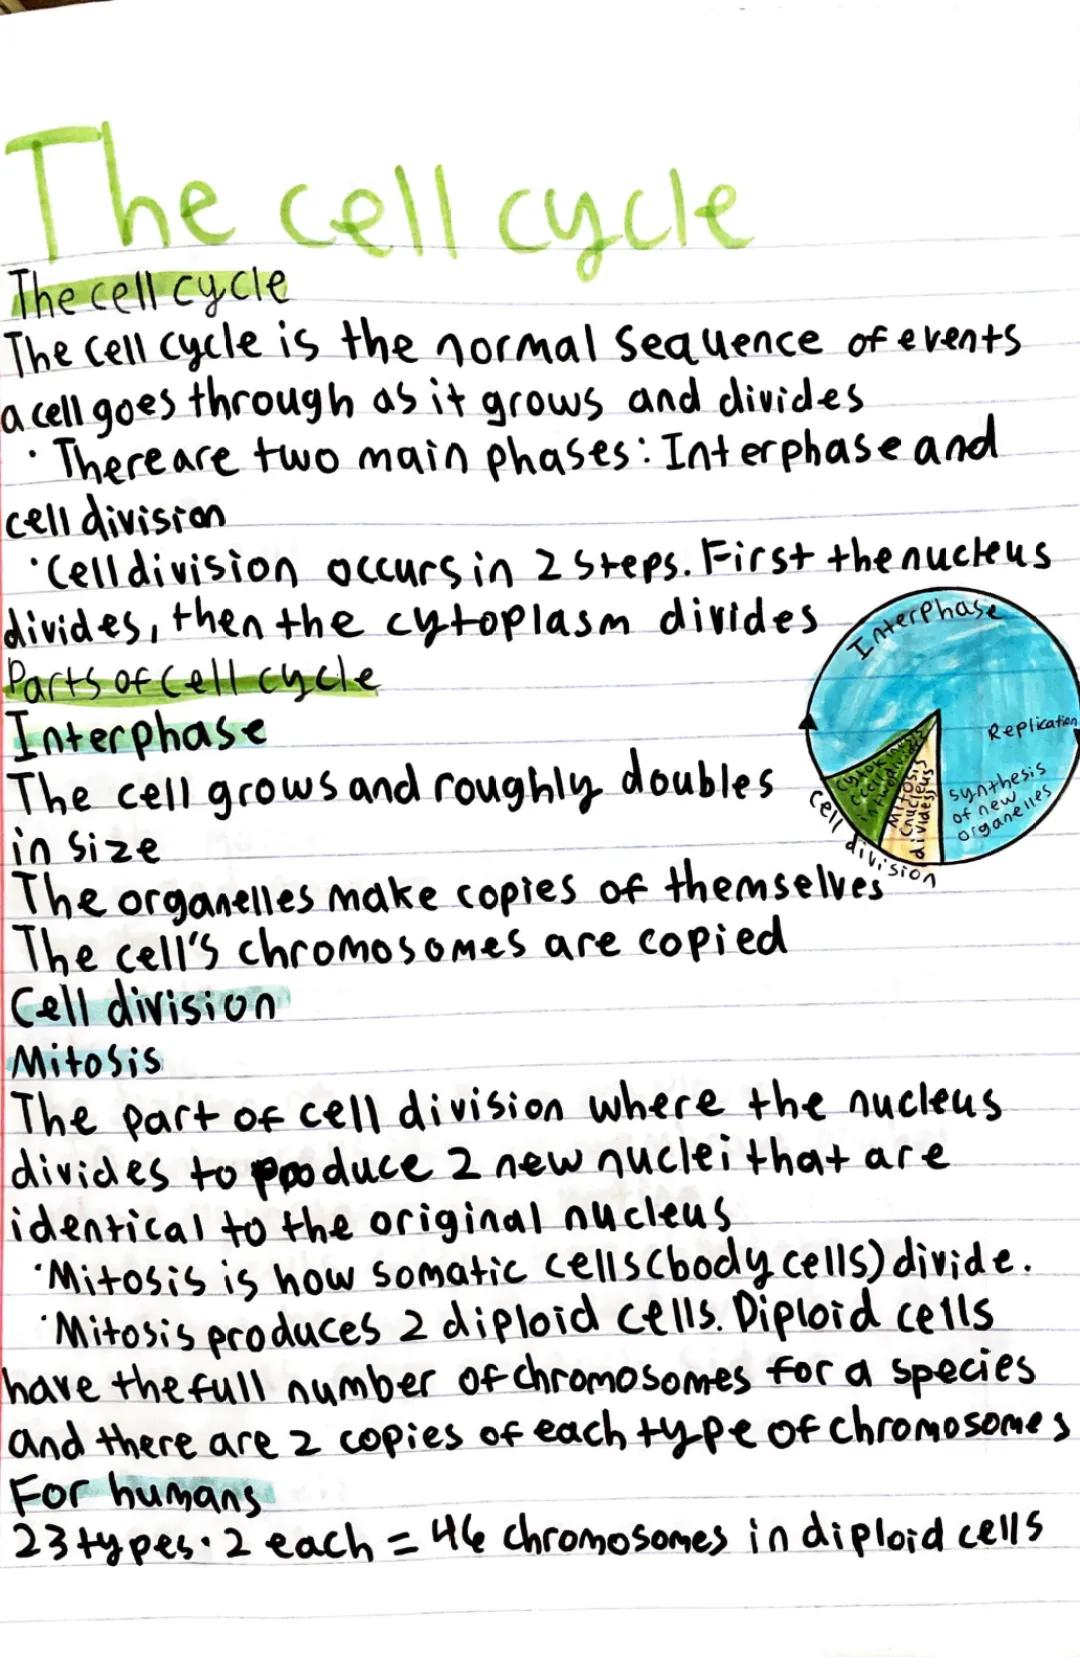 The cell cycle
The cell cycle
The cell cycle is the normal sequence of events
a cell goes through as it grows and divides
· There are two main phases: Interphase and
cell division
· Cell division occurs in 2 steps. First the nucleus
divides, then the cytoplasm divides
Interphase
Replication
synthesis
of new
organelles
Mitosis
(nucleus
divides)
cell division
Parts of cell cycle
Interphase
The cell grows and roughly doubles
in size
The organelles make copies of themselves
The cell's chromosomes are copied
Cell division
Mitosis
The part of cell division where the nucleus
divides to produce 2 new nuclei that are
identical to the original nucleus
· Mitosis is how somatic cells (body cells) divide.
· Mitosis produces 2 diploid cells. Diploid cells
have the full number of chromosomes for a species
and there are 2 copies of each type of chromosomes
For humans
23 types · 2 each = 46 chromosomes in diploid cells